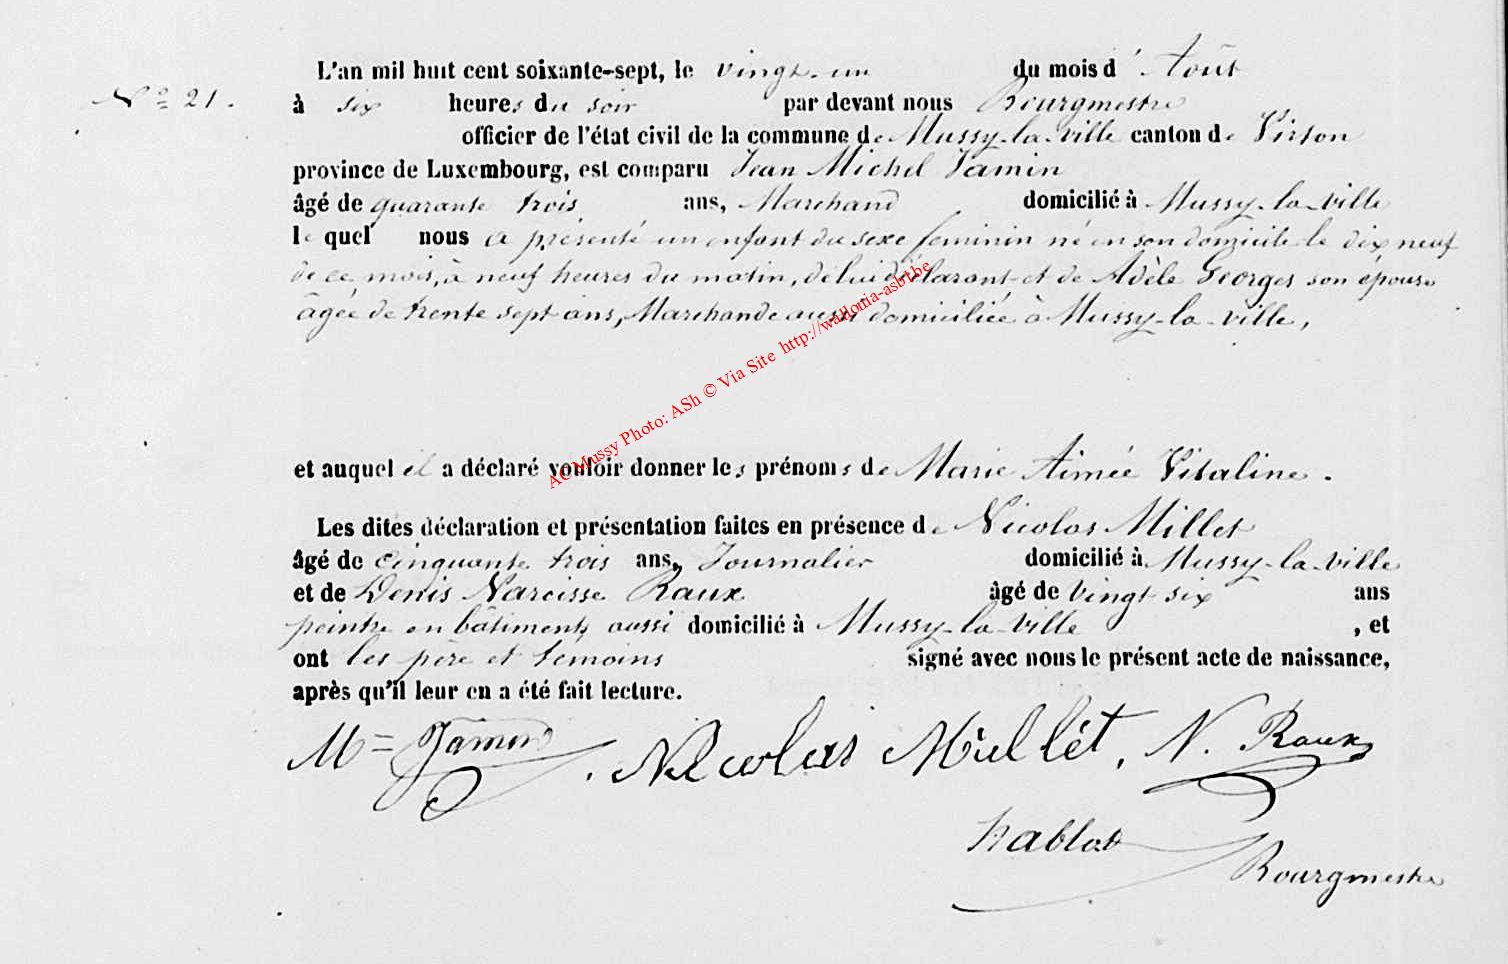 L'an mil huit cent soixante-sept, le vingt-un du mois d' Août
N° 21. à six heures du soir par devant nous Bourgmestre
officier de l'état civil de la commune de Mussy-la-ville canton de Virton
province de Luxembourg, est comparu Jean Michel Jamin
âgé de quarante trois ans, Marchand domicilié à Mussy-la-ville
lequel nous a présenté un enfant du sexe féminin né en son domicile le dix neuf
de ce mois, à neuf heures du matin, de lui déclarant et de Adèle Georges son épouse
âgée de trente sept ans, Marchande aussi domiciliée à Mussy-la-ville,
AC Mussy Photo: ASh © Via Site http://wallonia-asbl.be
et auquel il a déclaré vouloir donner les prénoms de Marie Aimée Vitaline.
Les dites déclaration et présentation faites en présence de Nicolas Millet
âgé de cinquante trois ans, Journalier domicilié à Mussy-la-ville
et de Denis Narcisse Raux âgé de vingt six ans
peintre en bâtiments aussi domicilié à Mussy-la-ville , et
ont les père et témoins signé avec nous le présent acte de naissance,
après qu'il leur en a été fait lecture.
M= Jamin. Nicolas Millet. N. Raux
Hablot
Bourgmestre